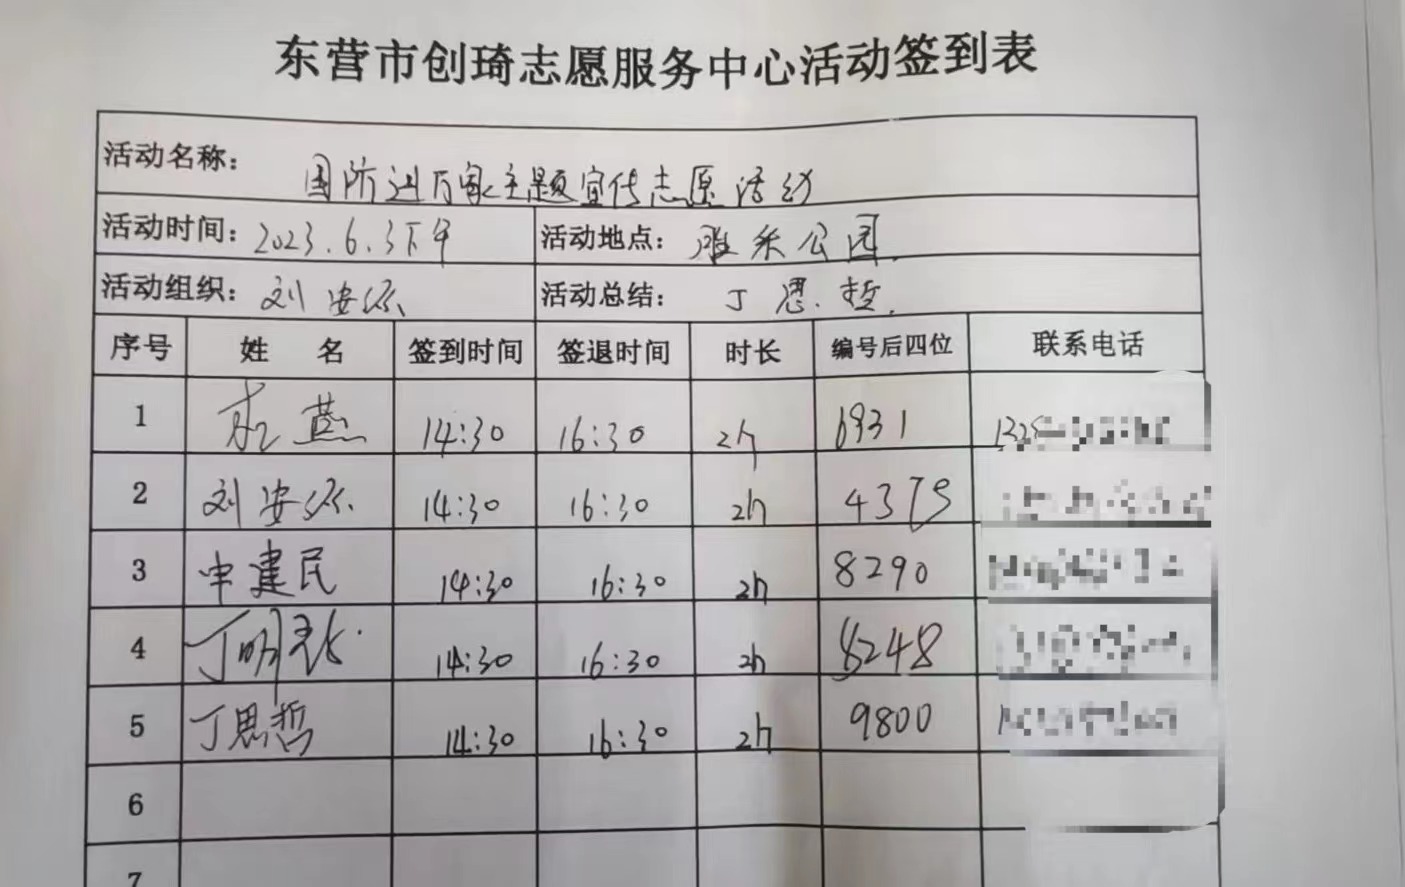 东营市创琦志愿服务中心活动签到表
活动名称: 国防进万家主题宣传志愿活动
活动时间: 2023.6.3下午 活动地点: 雅乐公园
活动组织: 刘安 活动总结: 丁思哲
序号 姓 名 签到时间 签退时间 时长 编号后四位 联系电话
1 燕 14:30 16:30 2h 6931
2 刘安 14:30 16:30 2h 4375
3 申建民 14:30 16:30 2h 8290
4 丁明 14:30 16:30 2h 8248
5 丁思哲 14:30 16:30 2h 9800
6
7